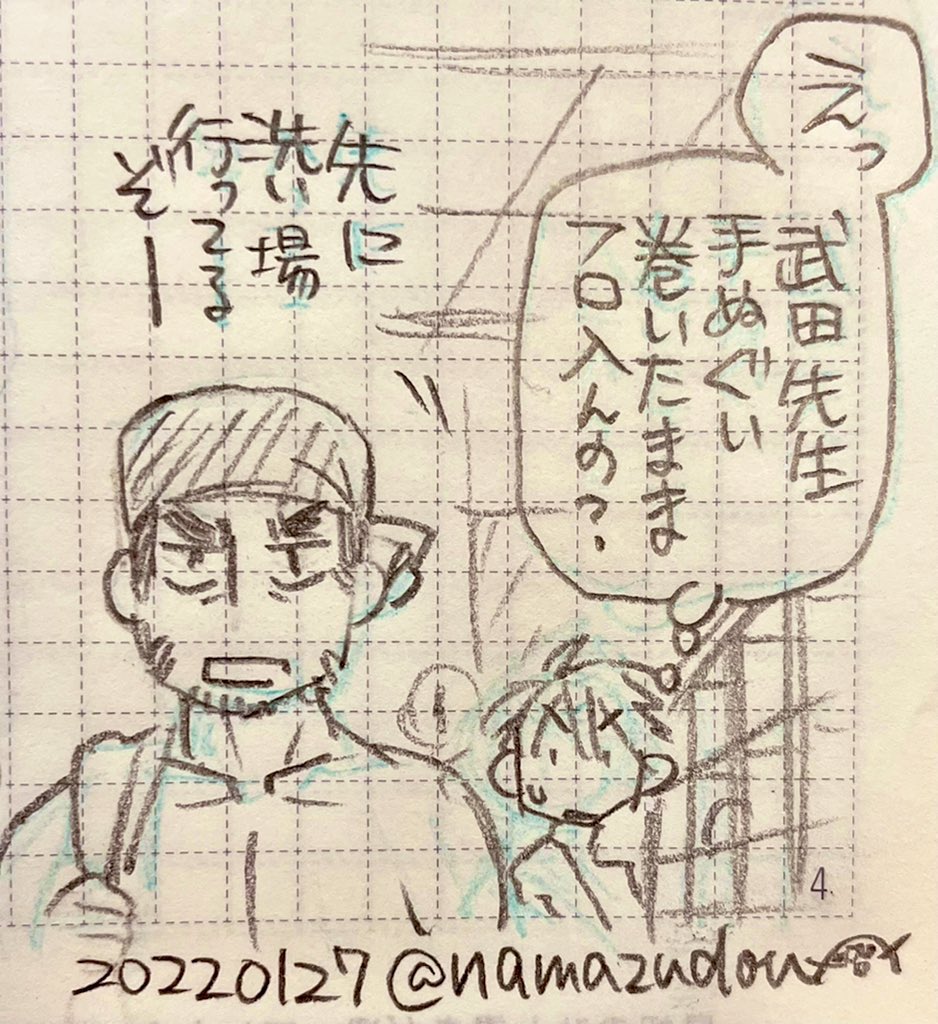 えっ
武田先生
手ぬぐい
巻いたまま
フロ入んの?
先に
洗い場
行ってる
ぞー
4
20220127 @namazudou